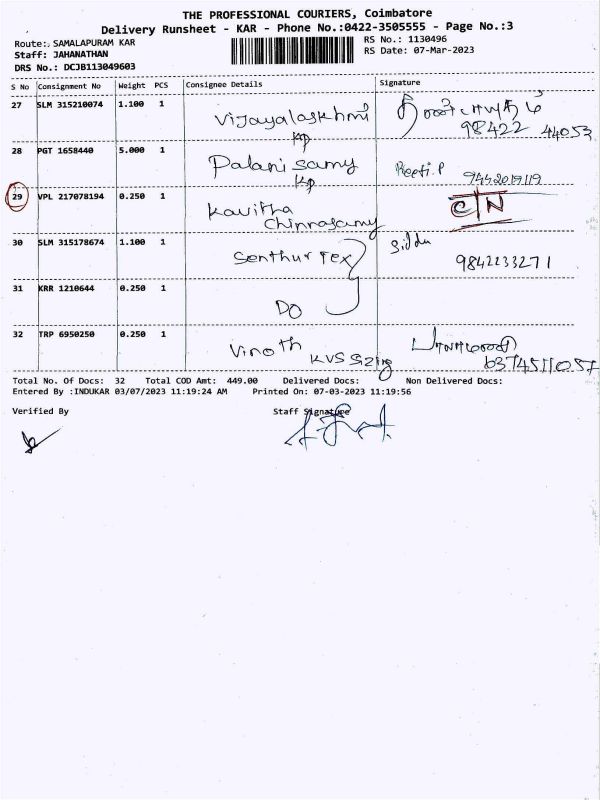 THE PROFESSIONAL COURIERS, Coimbatore
Delivery Runsheet - KAR - Phone No.:0422-3505555 - Page No.:3
Route:. SAMALAPURAM KAR
Staff: JAHANATHAN
DRS No.: DCJB113049603
RS No.: 1130496
RS Date: 07-Mar-2023
S No Consignment No Weight PCS Consignee Details Signature
27 SLM 315210074 1.100 1 Vijayalaskhmi
Kp
98422 44053
28 PGT 1658440 5.000 1 Palanisamy
Kp
Preeti.P 9442019119
29 VPL 217078194 0.250 1 Kavitha
Chinnasamy
C/N
30 SLM 315178674 1.100 1 Senthur Tex
Siddu
9842233271
31 KRR 1210644 0.250 1 DO
32 TRP 6950250 0.250 1 Vinoth
KVS Sizing
6374511057
Total No. Of Docs: 32 Total COD Amt: 449.00 Delivered Docs: Non Delivered Docs:
Entered By :INDUKAR 03/07/2023 11:19:24 AM Printed On: 07-03-2023 11:19:56
Verified By Staff Signature